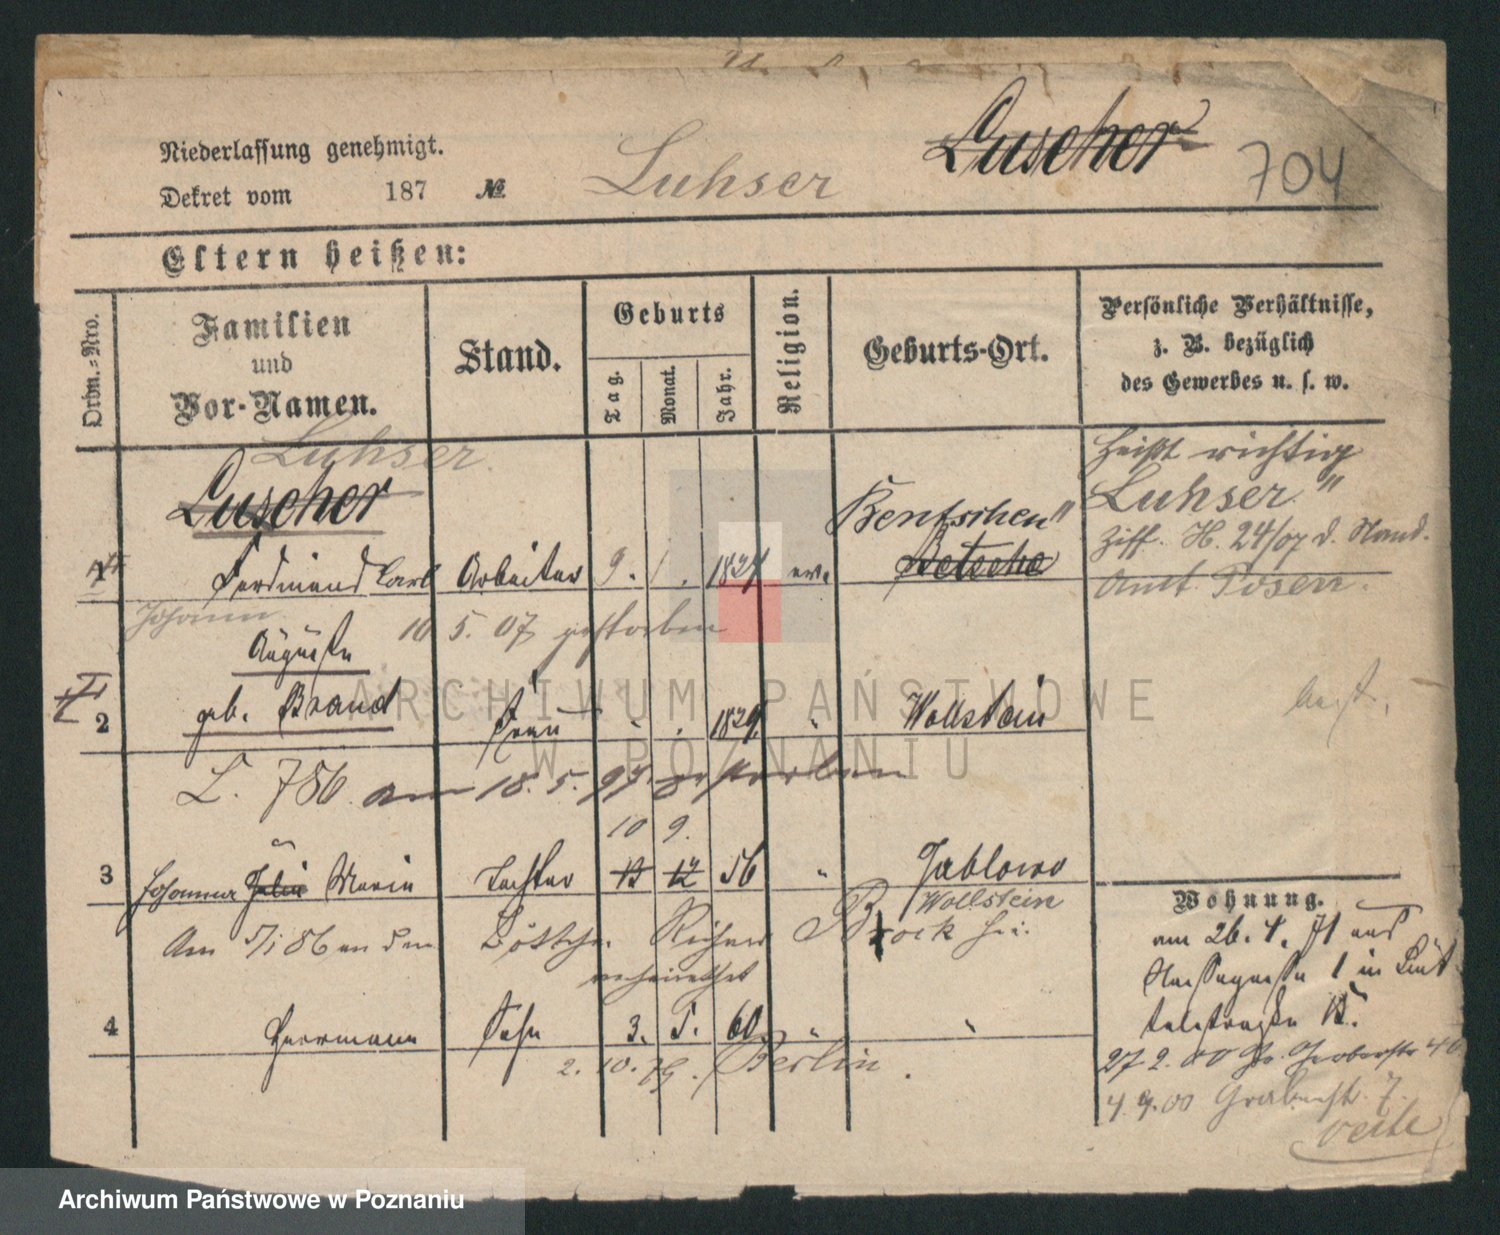 Niederlassung genehmigt.
Dekret vom 187 №
Luhser
Luscher
704
Eltern heißen:
Ordn.-Nro.
Familien
und
Vor-Namen.
Stand.
Geburts
Tag.
Monat.
Jahr.
Religion.
Geburts-Ort.
Persönliche Verhältnisse,
z. B. bezüglich
des Gewerbes u. s. w.
Luhser.
Luscher
1 Ferdinand Carl Arbeiter 9. 1. 1827 ev.
Bentschen
Betsche
heißt richtig
Luhser"
Ziff. H. 24/07 d. Stand.
Amt Posen.
Johann
10 5. 07 gestorben
Auguste
2 geb. Brand Frau 1829 " Wollstein
L. 786 am 18. 5. 97 gestorben
10 9.
3 Johanna Julie Marie Tochter 13 12 56 " Jablowo
Wollstein
Am 5/1 86 an den Böttcher Richard Brock hi.
verheirathet
4 Herrmann Sohn 3. 5. 60. " "
2. 10. 79. Berlin.
Wohnung.
am 26. 4. 71 aus
1 in
15.
27 2. 00 Gr. Gerberstr 40
4. 9. 00 Grabenstr. 7.
verte
ARCHIWUM PAŃSTWOWE
W POZNANIU
Archiwum Państwowe w Poznaniu